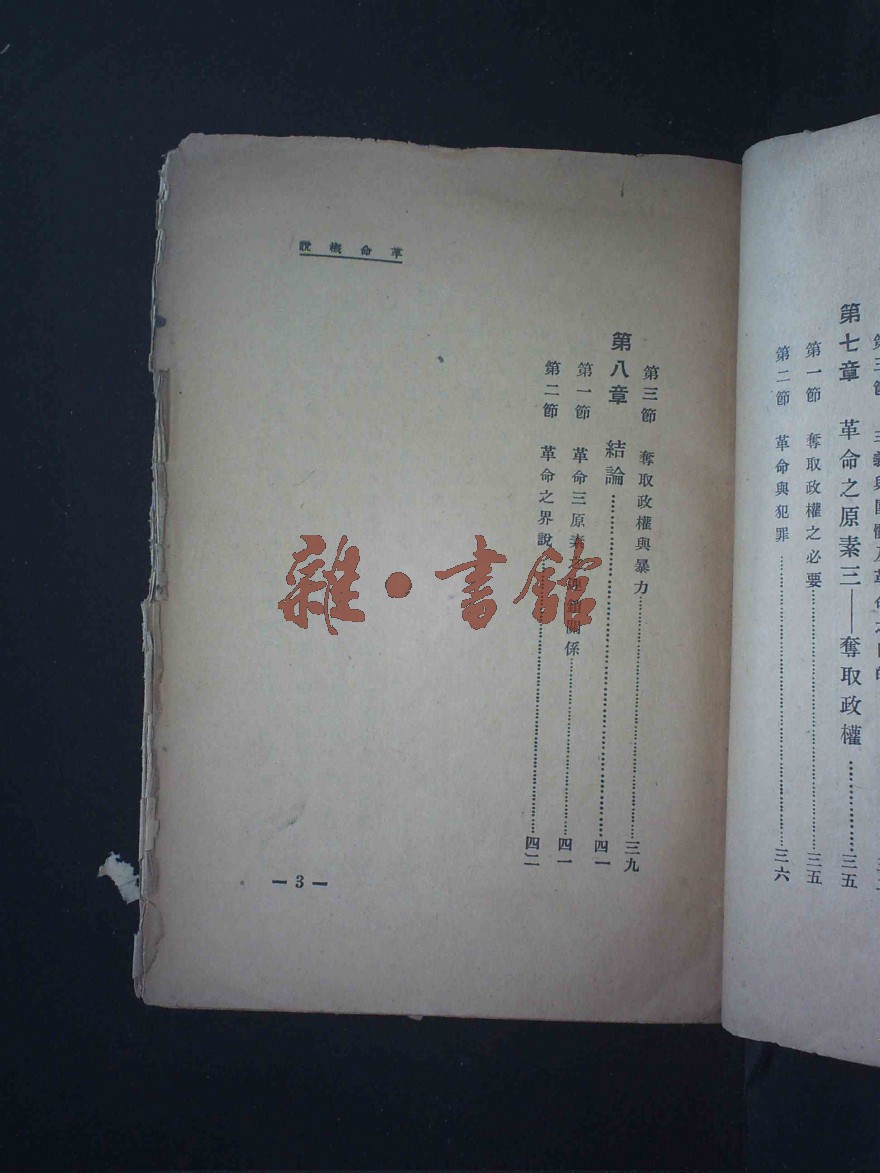 第七章 革命之原素三——奪取政權……三五
第一節 奪取政權之必要……三五
第二節 革命與犯罪……三六
革命概說
第三節 奪取政權與暴力……三九
第八章 結論……四一
第一節 革命三原素 關係……四一
第二節 革命之界說……四二
— 3 —
雜·書館